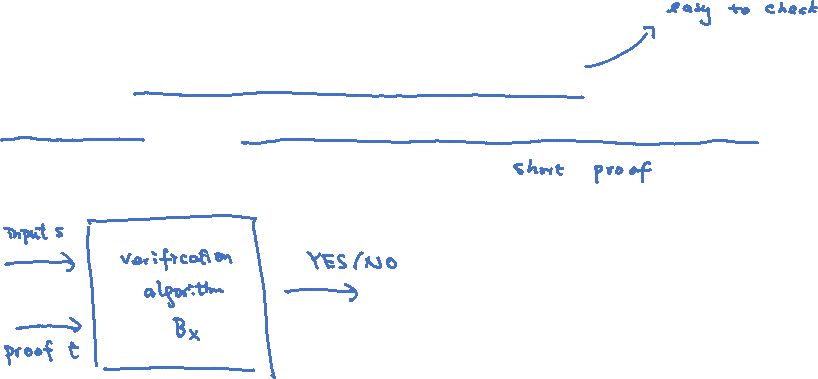 easy to check
short proof
input s
verification
algorithm
Bx
proof t
YES/NO